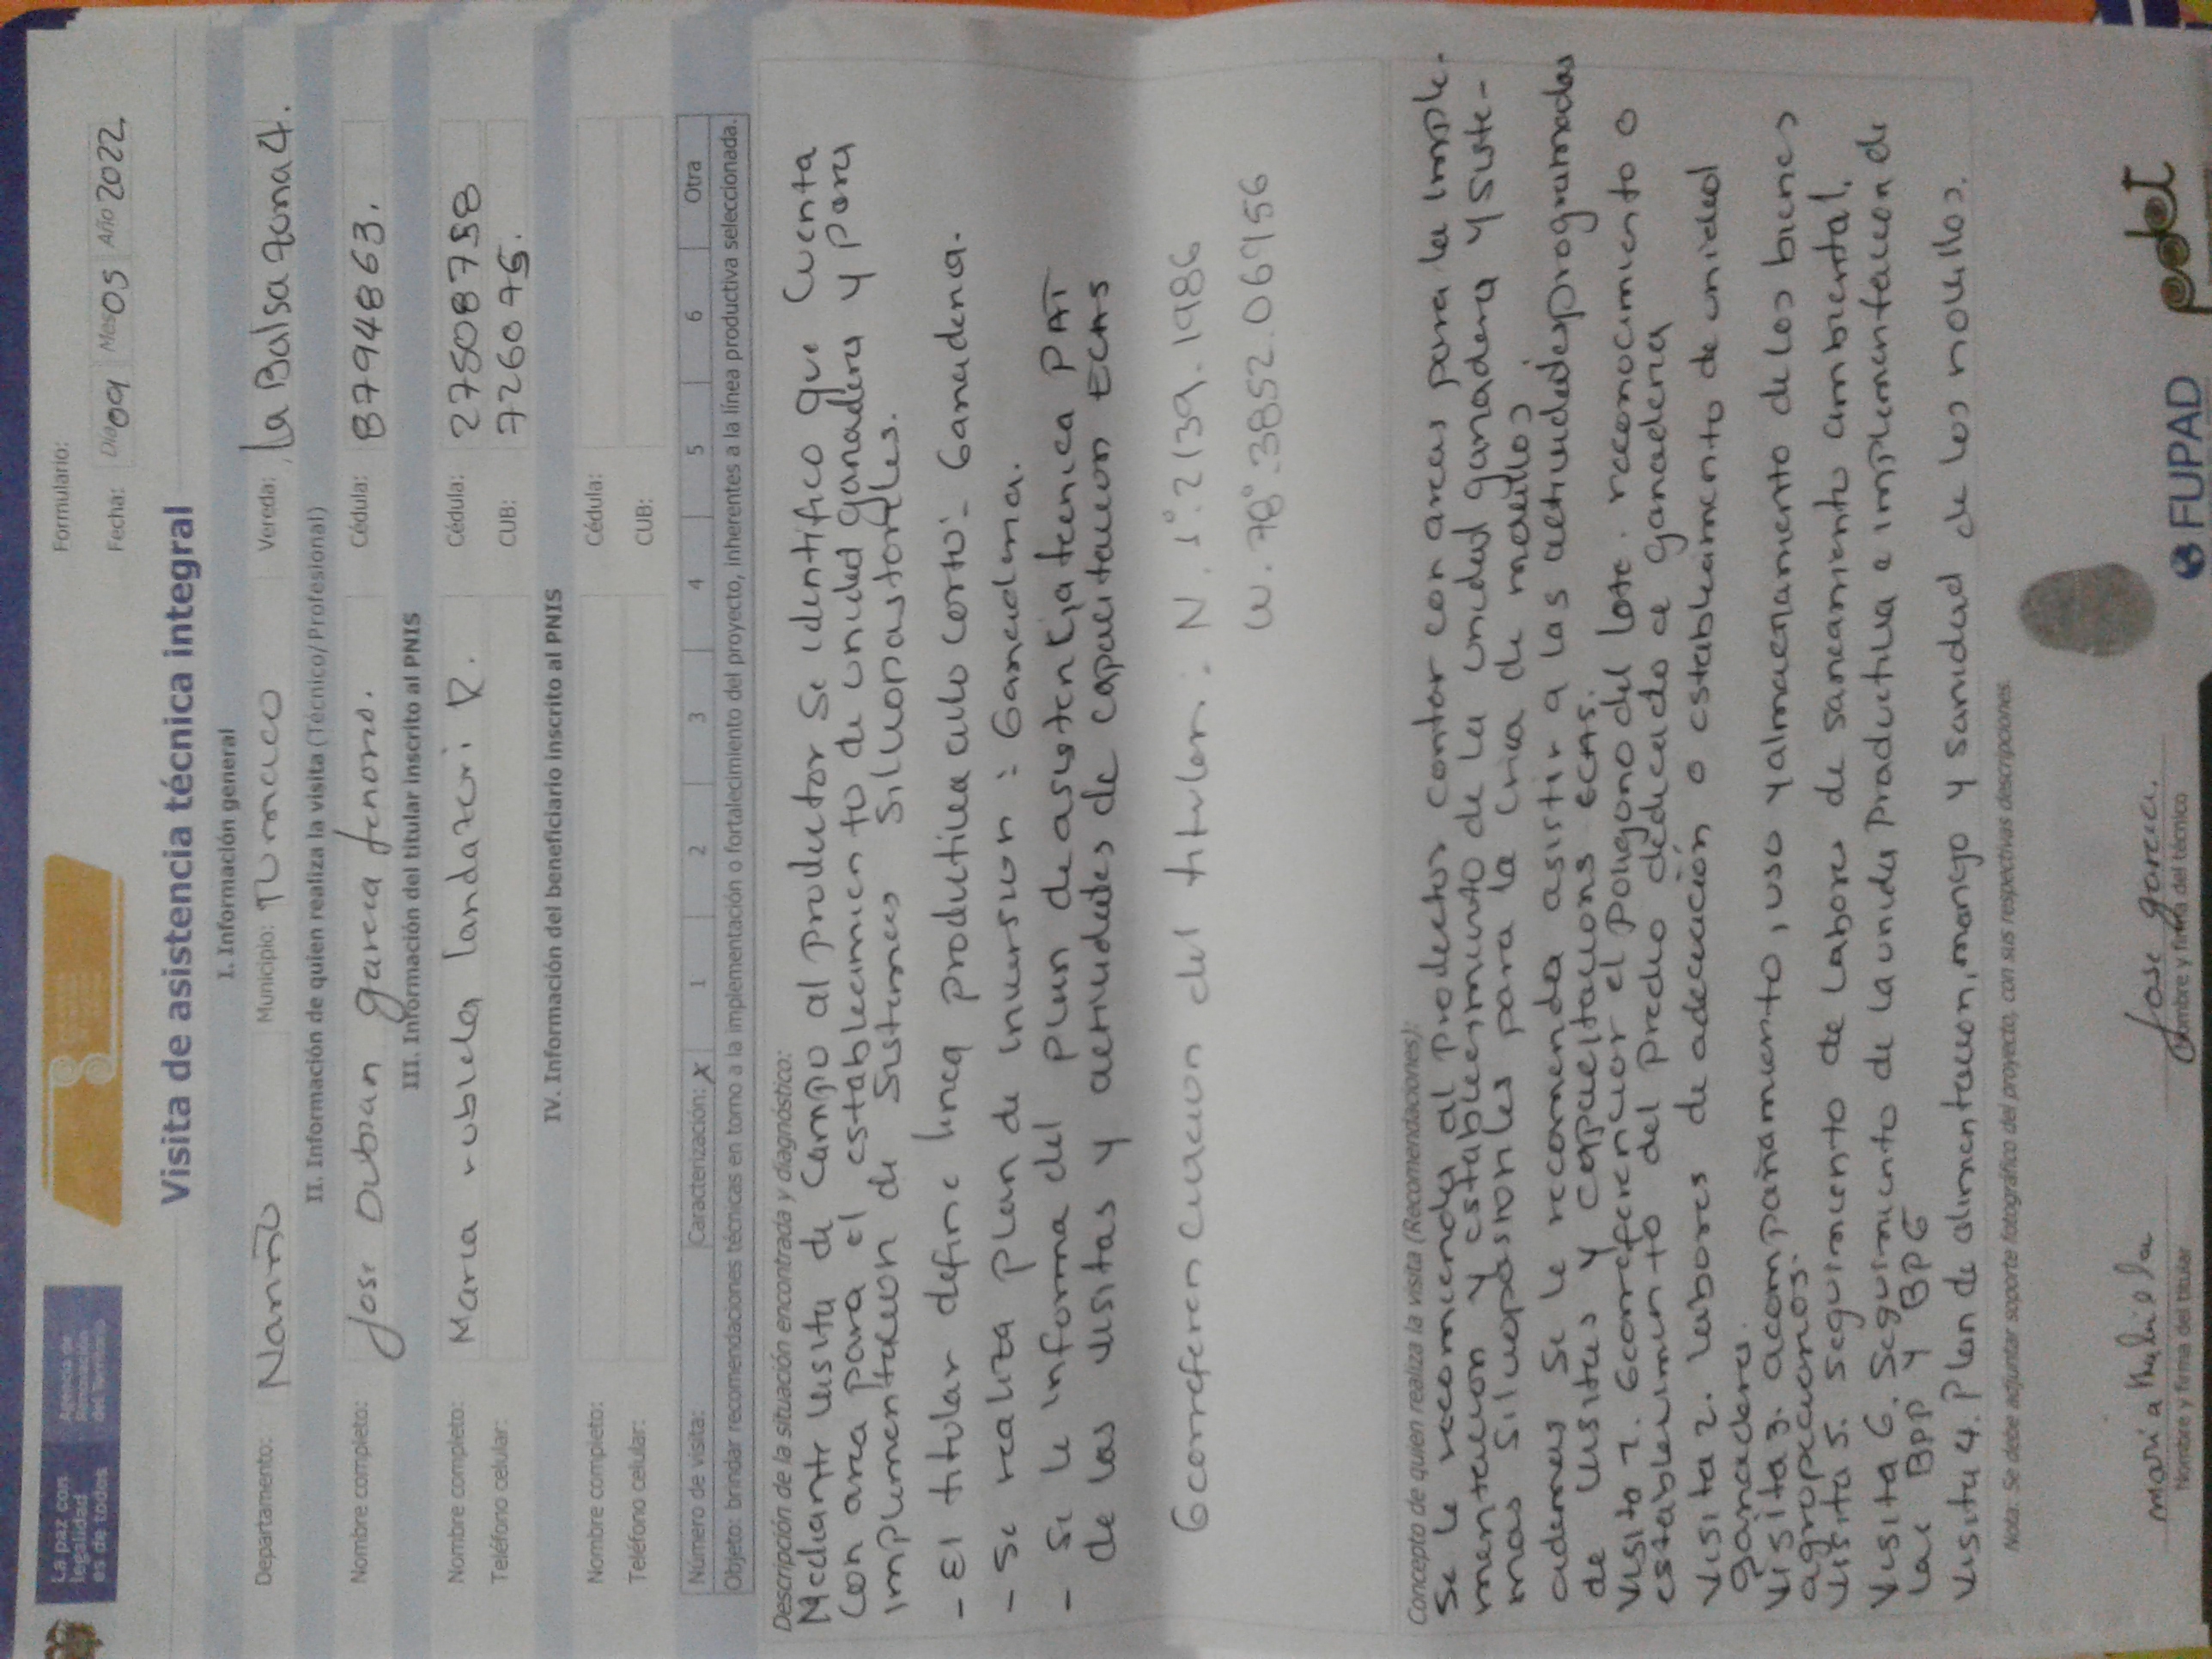 La paz con
legalidad
es de todos
Agencia de
Renovación
del Territorio
Formulario:
Fecha: Día 09 Mes 05 Año 2022
Visita de asistencia técnica integral
I. Información general
Departamento: Nariño Municipio: Tumaco Vereda: la Balsa zona 4.
II. Información de quien realiza la visita (Técnico/Profesional)
Nombre completo: Jose Duban garcia tenorio. Cédula: 87944863.
III. Información del titular inscrito al PNIS
Nombre completo: Maria rubiela landazuri R. Cédula: 27508758
Teléfono celular: CUB: 726075.
IV. Información del beneficiario inscrito al PNIS
Nombre completo: Cédula:
Teléfono celular: CUB:
Número de visita: Caracterización: X 1 2 3 4 5 6 Otra
Objeto: brindar recomendaciones técnicas en torno a la implementación o fortalecimiento del proyecto, inherentes a la línea productiva seleccionada.
Descripción de la situación encontrada y diagnóstico:
Mediante visita de campo al productor se identifico que cuenta
con area para el establecimiento de unidad ganadera y para
implementacion de sistemas silvopastoriles.
- El titular define linea productiva ciclo corto - Ganaderia.
- Se realiza plan de inversion: Ganaderia.
- Se le informa del plan de asistencia tecnica PAT
de las visitas y actividades de capacitacion ECAS
Georreferenciacion del titular: N. 1°.2139.1986
W. 78°.3852.06956
Concepto de quien realiza la visita (Recomendaciones):
Se le recomienda al productor contar con areas para la imple-
mentacion y establecimiento de la unidad ganadera y siste-
mas silvopastoriles para la cria de novillos
ademas se le recomienda asistir a las actividades programadas
de visitas y capacitacions ECAS.
Visita 1. Georreferenciar el poligono del lote. reconocimiento o
establecimiento del predio dedicado a ganaderia
Visita 2. labores de adecuación o establecimiento de unidad
ganadera.
Visita 3. acompañamiento, uso y almacenamiento de los bienes
agropecuarios.
Visita 5. seguimiento de labores de saneamiento ambiental.
Visita 6. Seguimiento de la unidad productiva e implementacion de
las BPP y BPG
Visita 4. Plan de alimentacion, manejo y sanidad de los novillos.
Nota: Se debe adjuntar soporte fotográfico del proyecto, con sus respectivas descripciones.
maría
Nombre y firma del titular
Jose garcia.
Nombre y firma del técnico
FUPAD
pdet